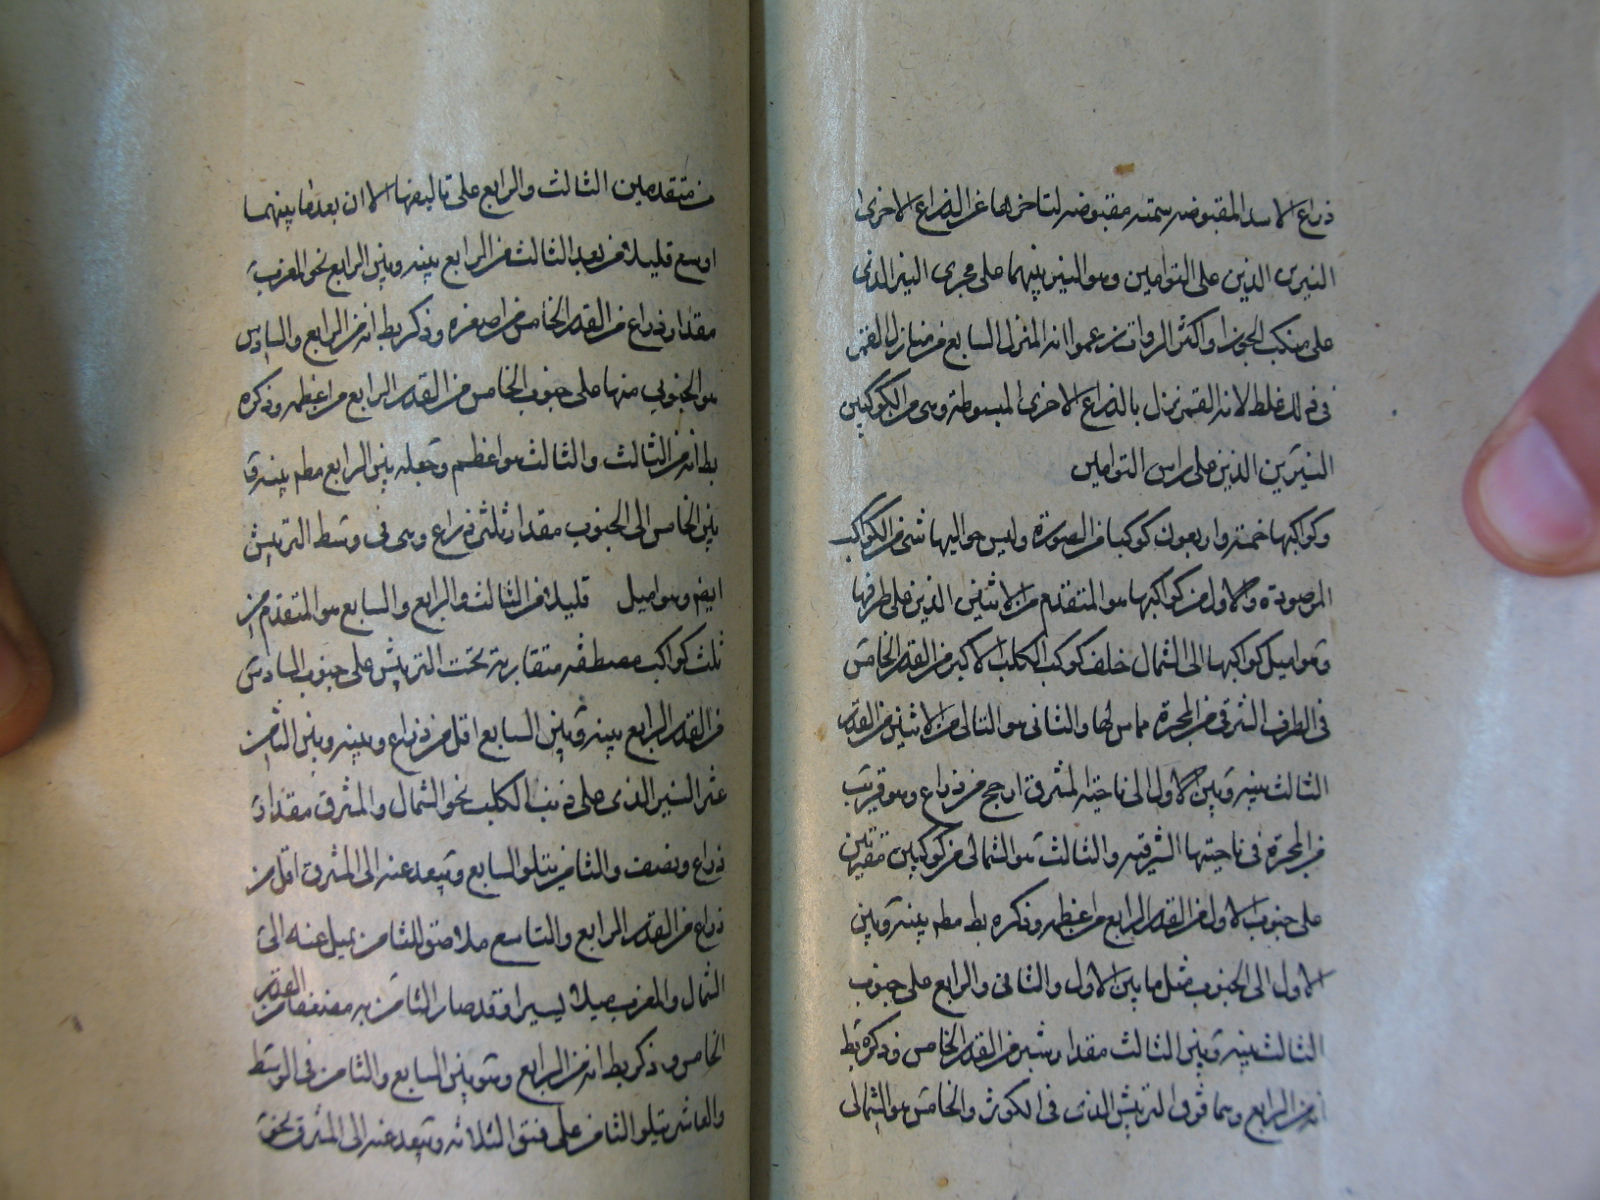 ذراع الاسد المقبوضه سمته مقبوضه لتاخرها عن الذراع الاخرى
النيرين الذين على التوامين وهو النير بينهما على مجرى النير الذى
على منكب الجوزا واكثر الرواة زعموا انه المنزل السابع من منازل القمر
فى ذلك غلط لانه القمر ينزل بالذراع الاخرى المبسوطة وهى من الكوكبين
النيرين الذين على راس التوامين
وكواكبها خمسة واربعون كوكبا من الصورة وليس حواليها شئ من الكواكب
المرصودة والاول من كواكبها هو المتقدم من الاثنين الذين على طرفها
وهو اميل كواكبها الى الشمال خلف كوكب الكلب الاكبر من القدر الخامس
فى الطرف الشرقى من المجرة مماس لها والثانى هو التالى من الاثنين من القدر
الثالث بينه وبين الاول الى ناحية المشرق ارجح من ذراع وهو قريب
من المجرة فى ناحيتها الشرقيه والثالث هو الشمالى من كوكبين مقترنين
على جنوب الاول من القدر الرابع من اعظمه وذكره بط مطم بينه وبين
الاول الى الجنوب مثل ما بين الاول والثانى والرابع على جنوب
الثالث بينه وبين الثالث مقدار شبر من القدر الخامس وذكره بط
انه من الرابع وهما فوق التربيش الذى فى الكوثل والخامس هو الشمالى
من متقدمين الثالث والرابع على تاليفها الا ان بعد ما بينهما
اوسع قليلا من بعد الثالث من الرابع بينه وبين الرابع نحو المغرب
مقدار ذراع من القدر الخامس من اصغره وذكر بط انه من الرابع والسادس
هو الجنوبي منها على جنوب الخامس من القدر الرابع من اعظمه وذكره
بط انه من الثالث والثالث هو اعظم وجعله بين الرابع مطم بينه و
بين الخامس الى الجنوب مقدار ثلثى ذراع وهى فى وسط التربيش
ايضا وهو اميل قليلا من الثالث والرابع والسابع هو المتقدم من
ثلث كواكب مصطفه متقاربة تحت التربيش على جنوب السادس
من القدر الرابع بينه وبين السابع اقل من ذراع وبينه وبين الثامن
عشر النير الذى على ذنب الكلب نحو الشمال والمشرق مقدار
ذراع ونصف والثامن يتلو السابع ويبعد عنه الى المشرق اقل من
ذراع من القدر الرابع والتاسع ملاصق للثامن يميل عنه الى
الشمال والمغرب ميلا يسيرا وقد صار الثامن به مضعفا من القدر
الخامس وذكر بط انه من الرابع وهو بين السابع والثامن فى الوسط
والعاشر يتلو الثامن على فتق الثلاثه ويبعد عنه الى المشرق نحو